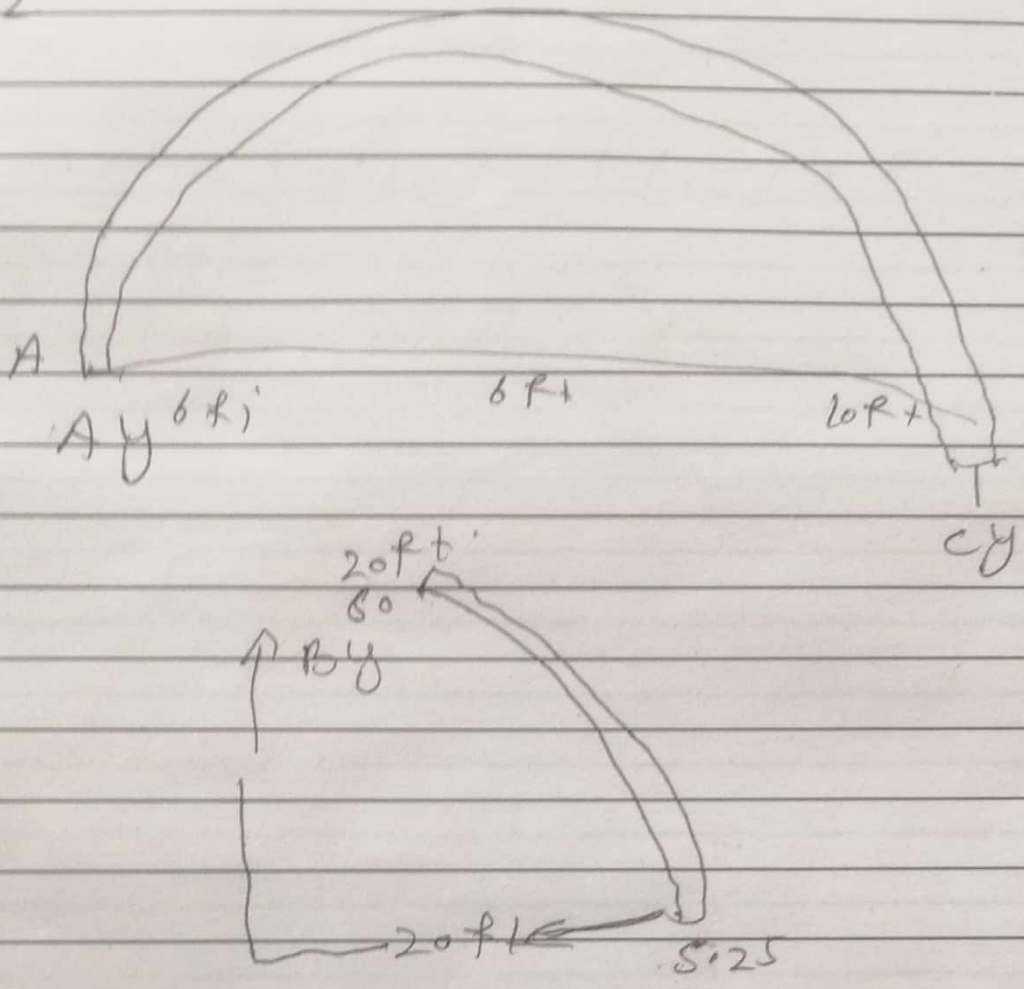 A
6 ft
6 ft
10 ft
Ay
Cy
20ft
60
By
20 ft
5.25